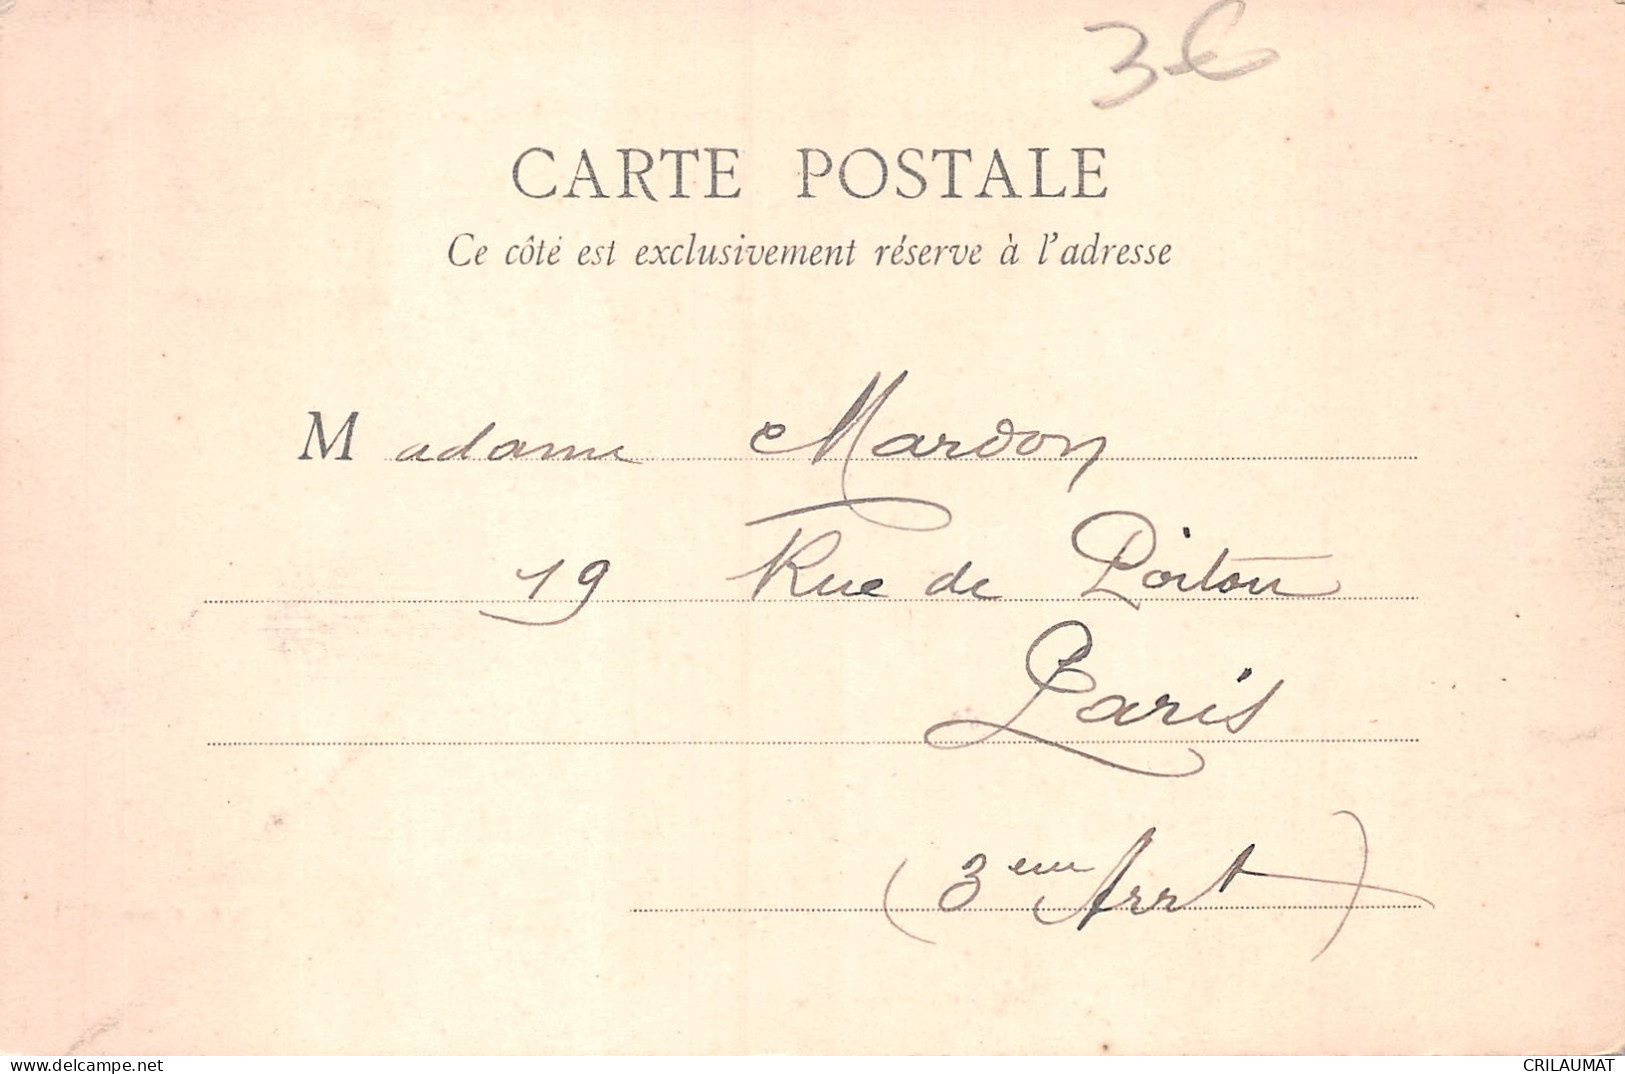 3 €
CARTE POSTALE
Ce côté est exclusivement réserve à l'adresse
Madame Mardon
19 Rue de Poitou
Paris
(3eme Arrt)
delcampe.net
CRILAUMAT